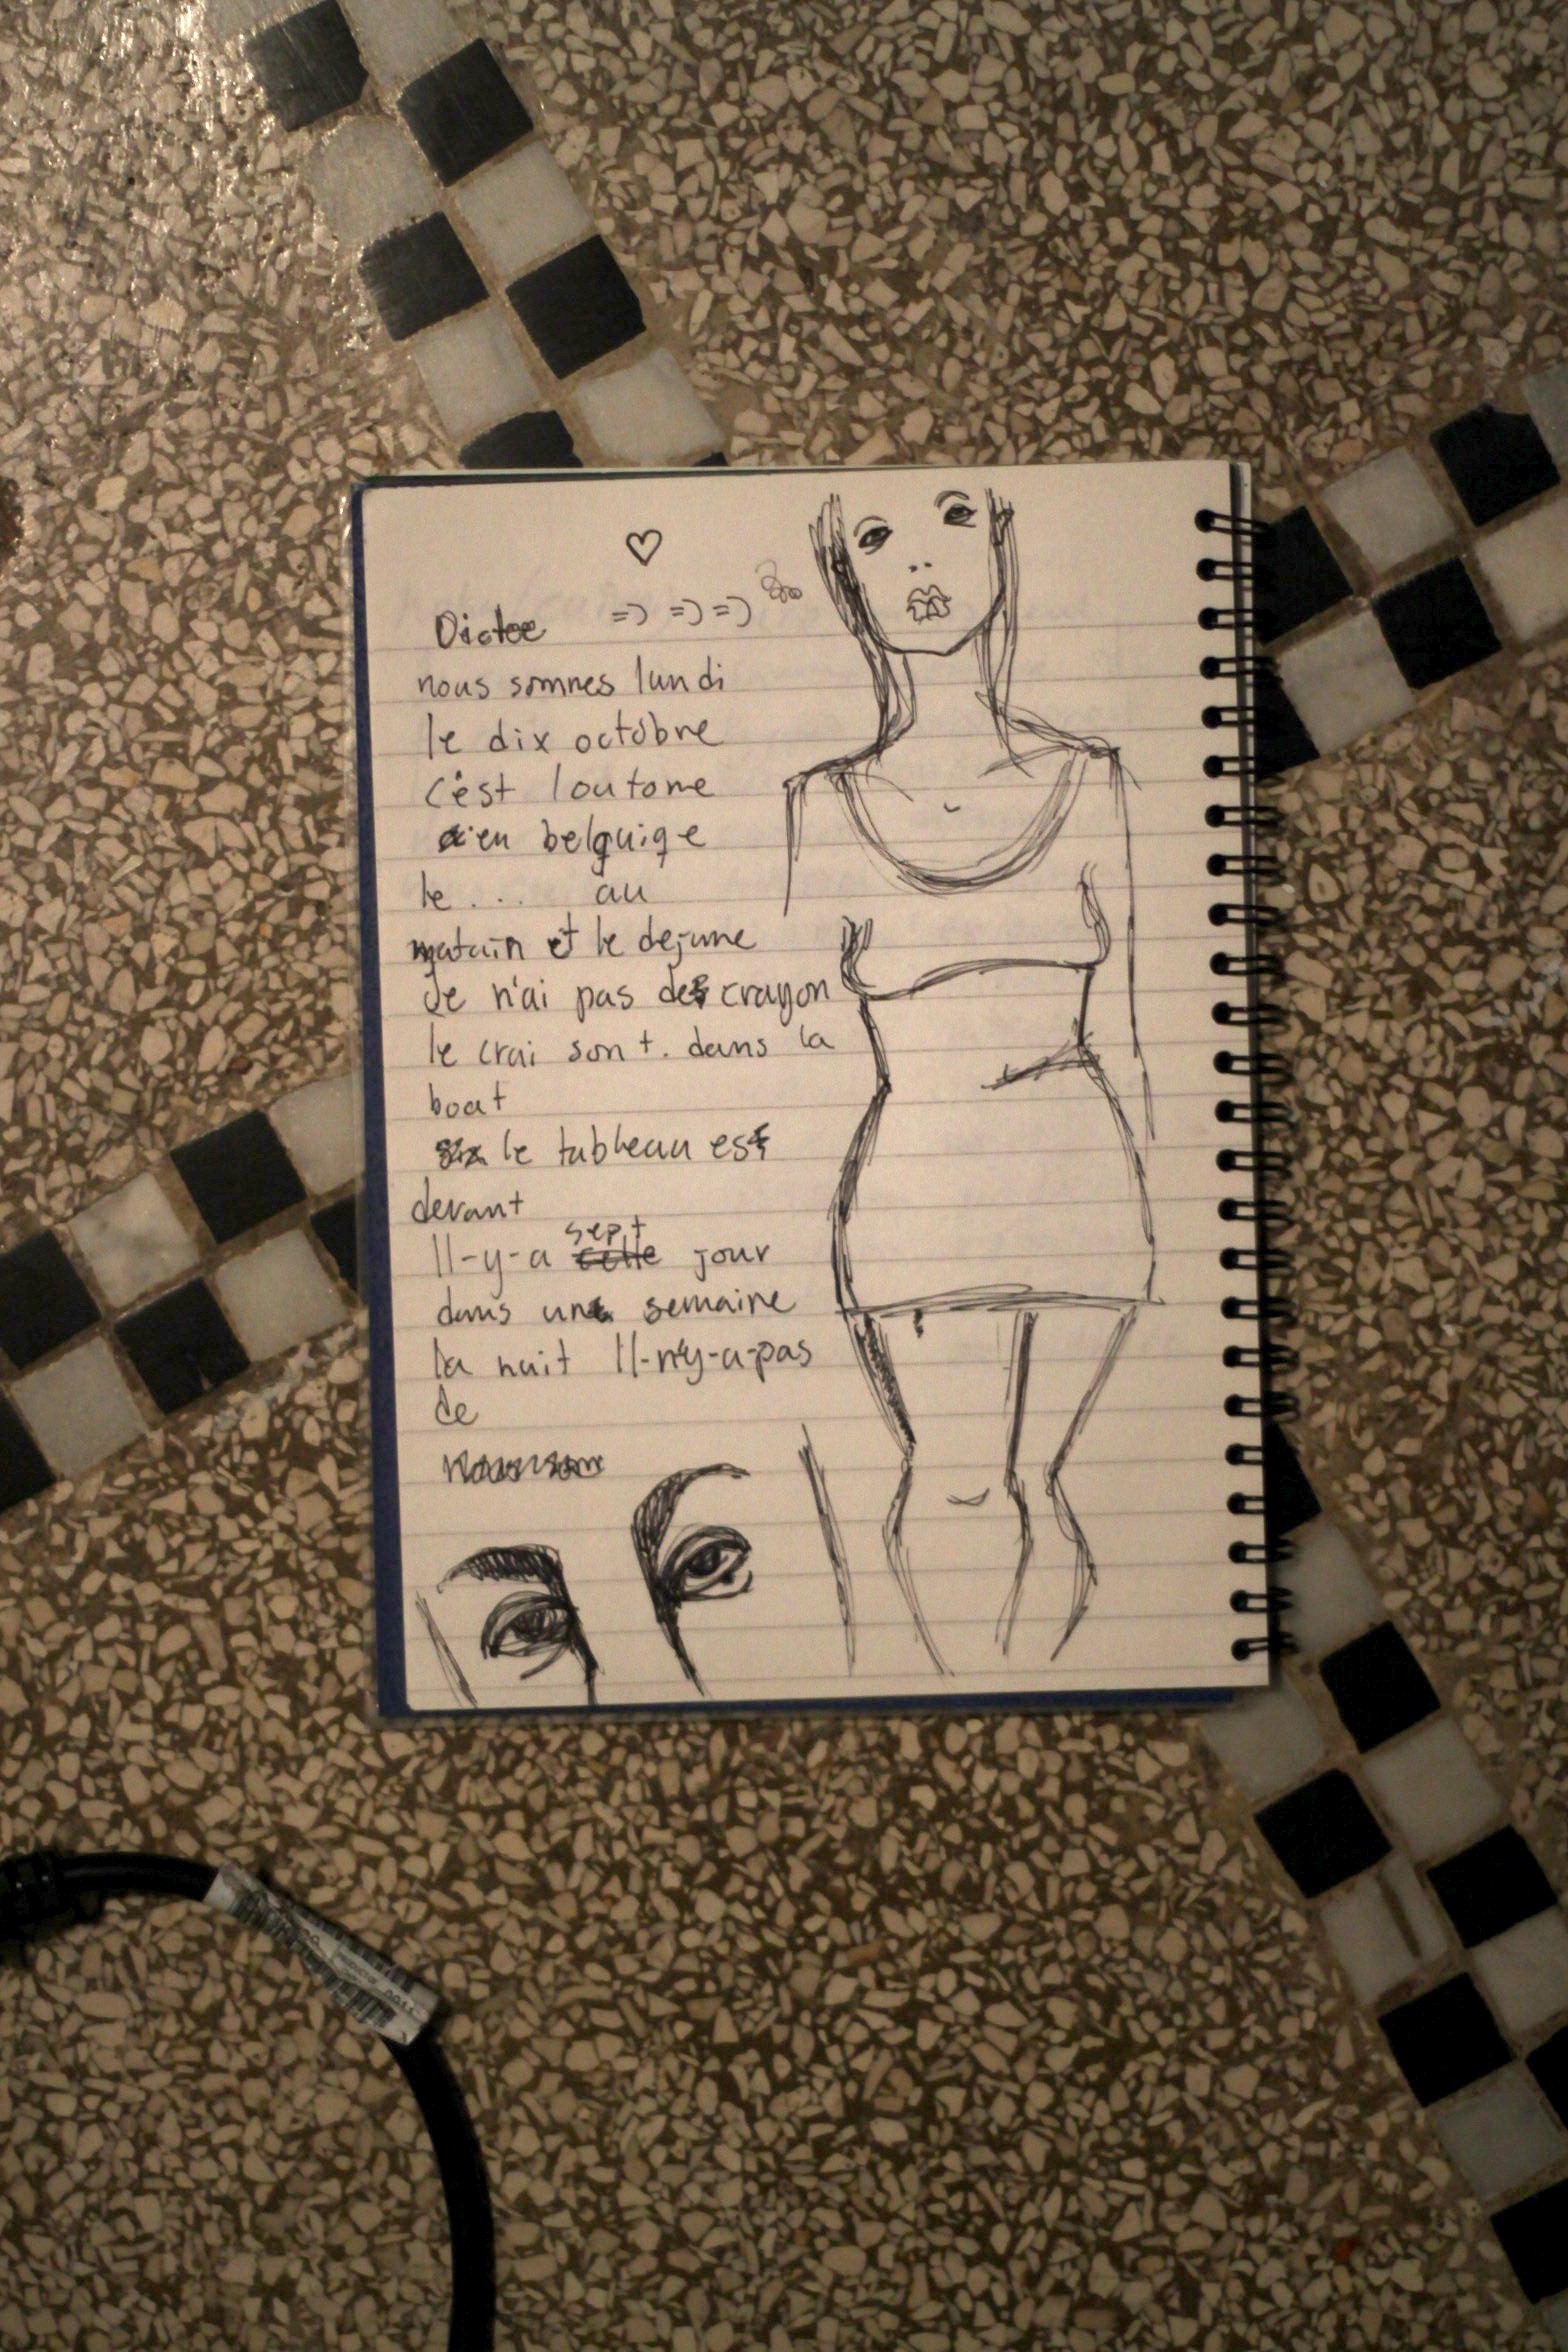 Dictee =) =) =)
nous somnes lundi
le dix octobre
c'est loutome
en belguiqe
le ... au
matain et le dejune
Je n'ai pas de crayon
le crai son t. dans la
boat
le tableau est
devant
Il-y-a sept jour
dans une semaine
la nuit Il-n'y-a-pas
de